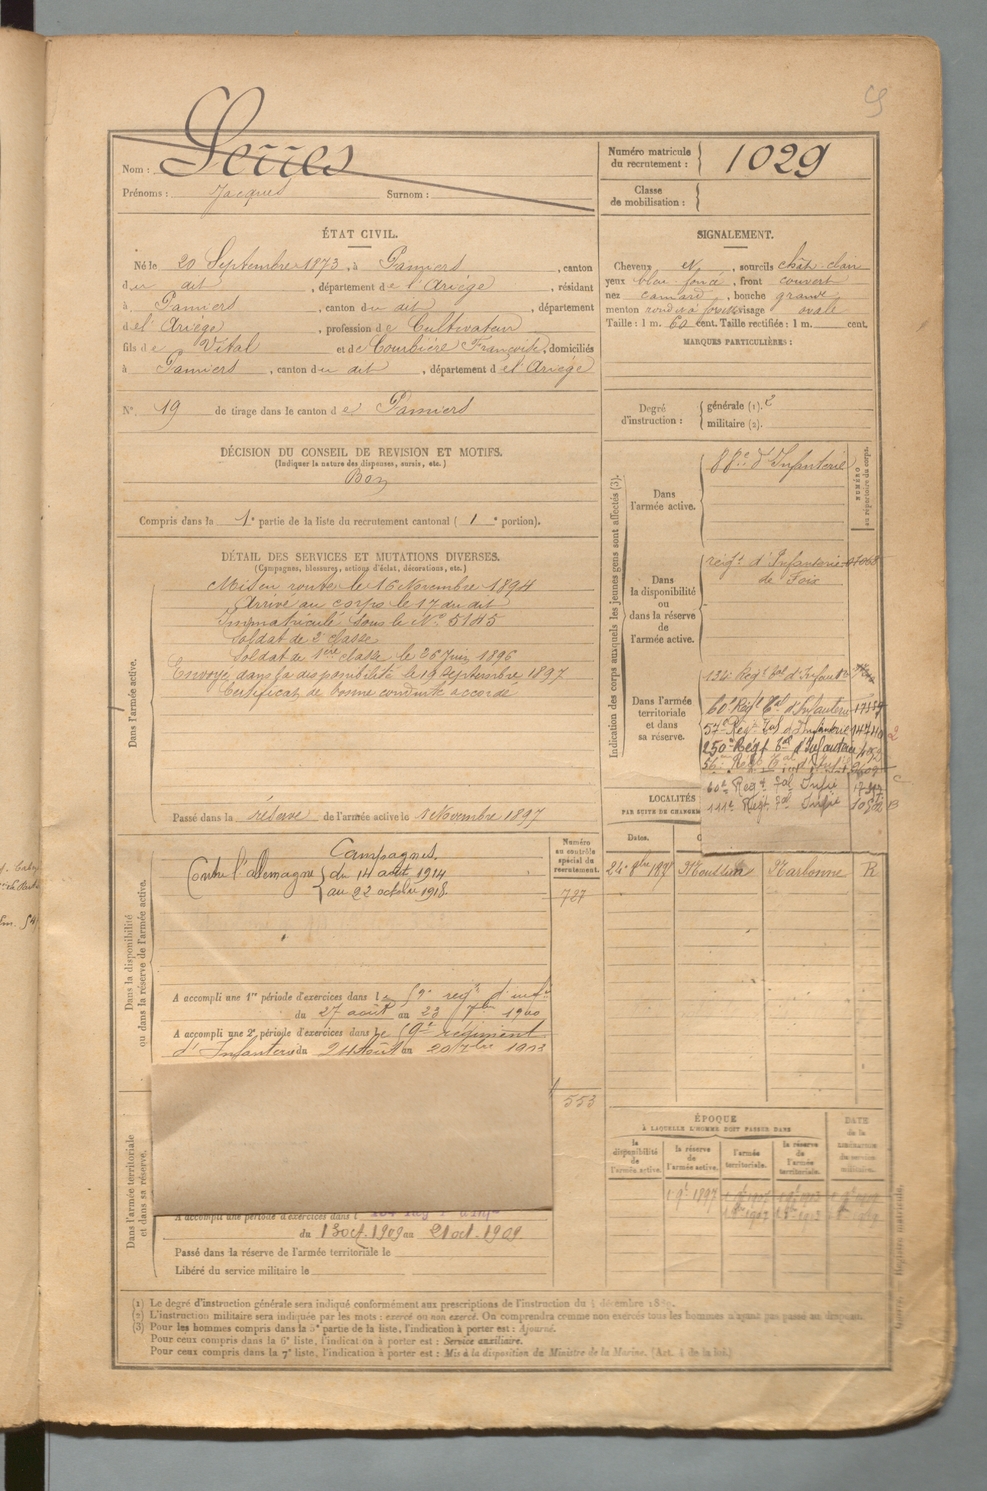 Nom : Serres
Prénoms : Jacques Surnom :
Numéro matricule
du recrutement : 1029
Classe
de mobilisation :
ÉTAT CIVIL.
Né le 20 Septembre 1873, à Pamiers, canton
du dit, département de l'Ariège, résidant
à Pamiers, canton du dit, département
de l'Ariège, profession de Cultivateur
fils de Vital et de Courbière Françoise, domiciliés
à Pamiers, canton du dit, département de l'Ariège
N° 19 de tirage dans le canton de Pamiers
DÉCISION DU CONSEIL DE REVISION ET MOTIFS.
(Indiquer la nature des dispenses, sursis, etc.)
Bon
Compris dans la 1e partie de la liste du recrutement cantonal ( 1e portion).
DÉTAIL DES SERVICES ET MUTATIONS DIVERSES.
(Campagnes, blessures, actions d'éclat, décorations, etc.)
Dans l'armée active.
Mis en route le 16 Novembre 1894
Arrivé au corps le 17 du dit
Immatriculé sous le N° 5185
Soldat de 2e classe
Soldat de 1ère classe le 26 Juin 1896
Envoyé dans la disponibilité le 19 Septembre 1897
Certificat de bonne conduite accordé
Passé dans la réserve de l'armée active le 1 Novembre 1897
Dans la disponibilité
ou dans la réserve de l'armée active.
Campagnes.
Contre l'allemagne { du 14 août 1914
au 22 octobre 1918
A accompli une 1re période d'exercices dans le 59e reg. d'inf.ie
du 27 août au 23 7bre 1900
A accompli une 2e période d'exercices dans le régiment
d'Infanterie du 24 Août au 20 7bre 1903
Numéro
au contrôle
spécial du
recrutement.
727
553
Dans l'armée territoriale
et dans sa réserve.
A accompli une période d'exercices dans l
du 13 oct. 1909 au 21 oct. 1909
Passé dans la réserve de l'armée territoriale le
Libéré du service militaire le
SIGNALEMENT.
Cheveux N, sourcils chât. clair
yeux bleu foncé, front couvert
nez camard, bouche grande
menton rond à fossette visage ovale
Taille : 1 m. 60 cent. Taille rectifiée : 1 m. cent.
MARQUES PARTICULIÈRES :
Degré
d'instruction :
générale (1).
militaire (2).
Indication des corps auxquels les jeunes gens sont affectés (3).
NUMÉRO
au répertoire du corps.
Dans
l'armée active.
88e d'Infanterie
Dans
la disponibilité
ou
dans la réserve
de
l'armée active.
régt. d'Infanterie
de Foix
Dans l'armée
territoriale
et dans
sa réserve.
134e Régt. tal d'Infant.
60e Régt. tal d'Infanterie
57e Régt. tal d'Infanterie
250e Régt. tal d'Infanterie
56e Régt. tal d'Infie
60e Regt. tal Infie
111e Regt. tal Infie
LOCALITÉS
PAR SUITE DE CHANGEM
Dates. C
24 8bre 1897 Moullens Narbonne R
ÉPOQUE
À LAQUELLE L'HOMME DOIT PASSER DANS
la
disponibilité
de
l'armée active.
la réserve
de
l'armée active.
l'armée
territoriale.
la réserve
de
l'armée
territoriale.
DATE
de la
LIBÉRATION
du service
militaire.
(1) Le degré d'instruction générale sera indiqué conformément aux prescriptions de l'instruction du
(2) L'instruction militaire sera indiquée par les mots : exercé ou non exercé. On comprendra comme non exercés tous les hommes n'ayant pas passé au drapeau.
(3) Pour les hommes compris dans la 5e partie de la liste, l'indication à porter est : Ajourné.
Pour ceux compris dans la 6e liste, l'indication à porter est : Service auxiliaire.
Pour ceux compris dans la 7e liste, l'indication à porter est : Mis à la disposition du Ministre de la Marine. (Art. 4 de la loi.)